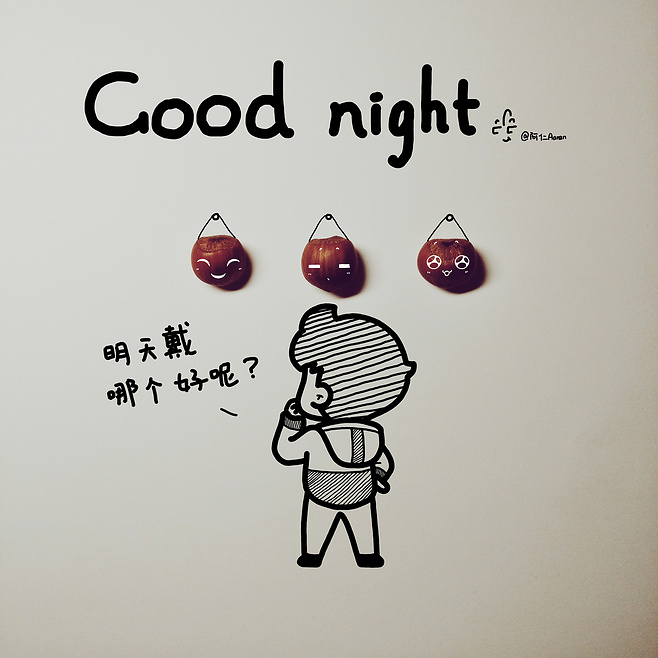 Good night
@阿仁Aaron
明天戴
哪个好呢？